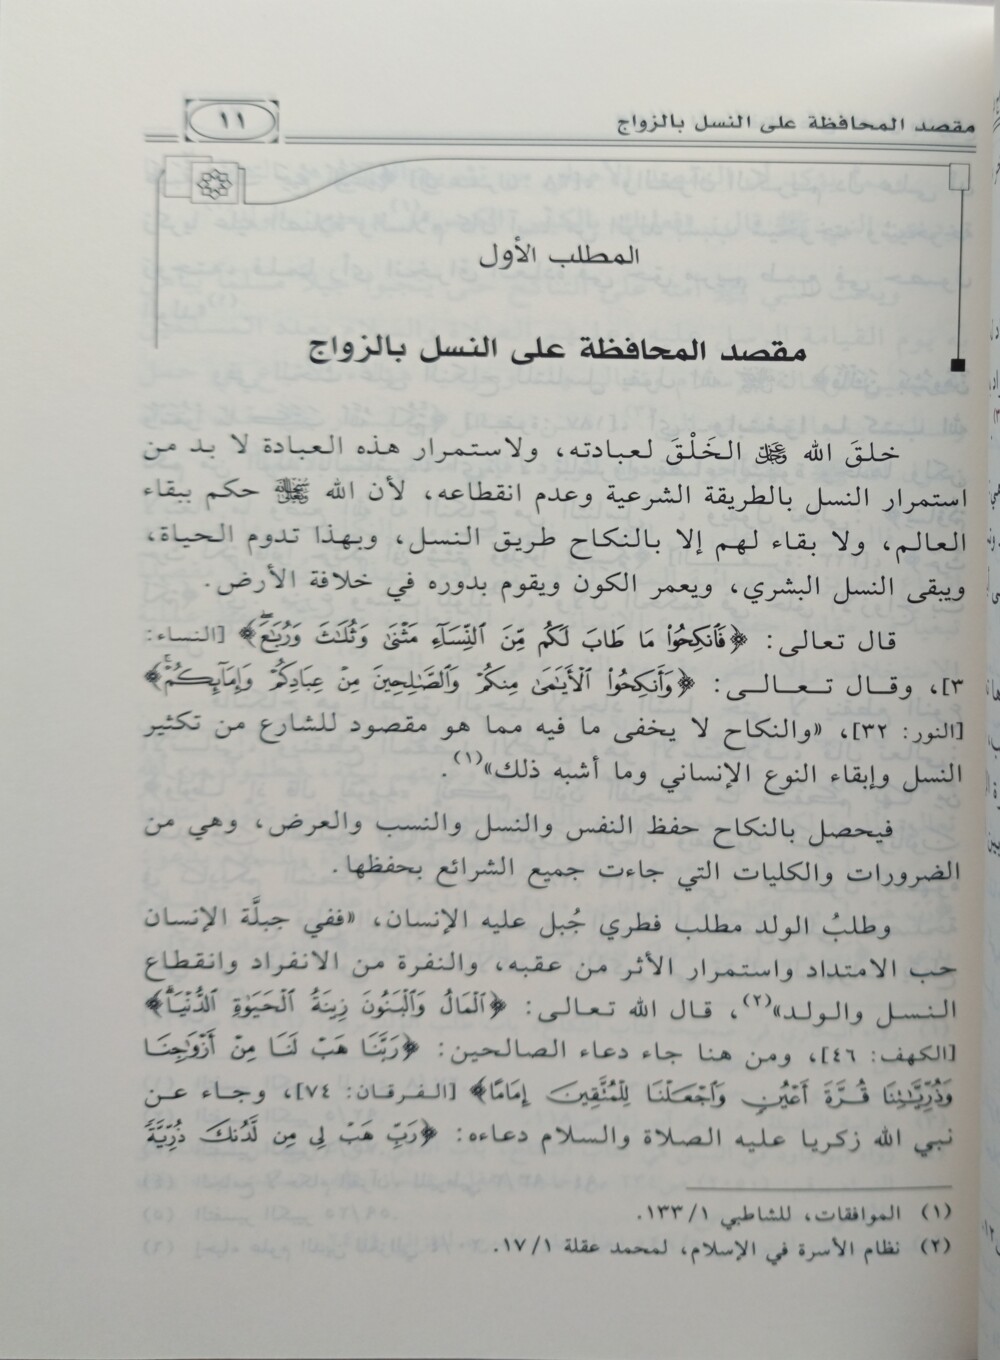 مقصد المحافظة على النسل بالزواج
١١
المطلب الأول
مقصد المحافظة على النسل بالزواج
خلقَ الله ﷿ الخَلْقَ لعبادته، ولاستمرار هذه العبادة لا بد من
استمرار النسل بالطريقة الشرعية وعدم انقطاعه، لأن الله ﷾ حكم ببقاء
العالم، ولا بقاء لهم إلا بالنكاح طريق النسل، وبهذا تدوم الحياة،
ويبقى النسل البشري، ويعمر الكون ويقوم بدوره في خلافة الأرض.
قال تعالى: ﴿فَٱنكِحُوا۟ مَا طَابَ لَكُم مِّنَ ٱلنِّسَآءِ مَثْنَىٰ وَثُلَـٰثَ وَرُبَـٰعَ ۖ﴾ [النساء:
٣]، وقال تعالى: ﴿وَأَنكِحُوا۟ ٱلْأَيَـٰمَىٰ مِنكُمْ وَٱلصَّـٰلِحِينَ مِنْ عِبَادِكُمْ وَإِمَآئِكُمْ ۚ﴾
[النور: ٣٢]، «والنكاح لا يخفى ما فيه مما هو مقصود للشارع من تكثير
النسل وإبقاء النوع الإنساني وما أشبه ذلك»(١).
فيحصل بالنكاح حفظ النفس والنسل والنسب والعرض، وهي من
الضرورات والكليات التي جاءت جميع الشرائع بحفظها.
وطلبُ الولد مطلب فطري جُبل عليه الإنسان، «ففي جبلَّة الإنسان
حب الامتداد واستمرار الأثر من عقبه، والنفرة من الانفراد وانقطاع
النسل والولد»(٢)، قال الله تعالى: ﴿ٱلْمَالُ وَٱلْبَنُونَ زِينَةُ ٱلْحَيَوٰةِ ٱلدُّنْيَا ۖ﴾
[الكهف: ٤٦]، ومن هنا جاء دعاء الصالحين: ﴿رَبَّنَا هَبْ لَنَا مِنْ أَزْوَٰجِنَا
وَذُرِّيَّـٰتِنَا قُرَّةَ أَعْيُنٍ وَٱجْعَلْنَا لِلْمُتَّقِينَ إِمَامًا﴾ [الفرقان: ٧٤]، وجاء عن
نبي الله زكريا عليه الصلاة والسلام دعاءه: ﴿رَبِّ هَبْ لِى مِن لَّدُنكَ ذُرِّيَّةً
(١) الموافقات، للشاطبي ١٣٣/١.
(٢) نظام الأسرة في الإسلام، لمحمد عقلة ١٧/١.